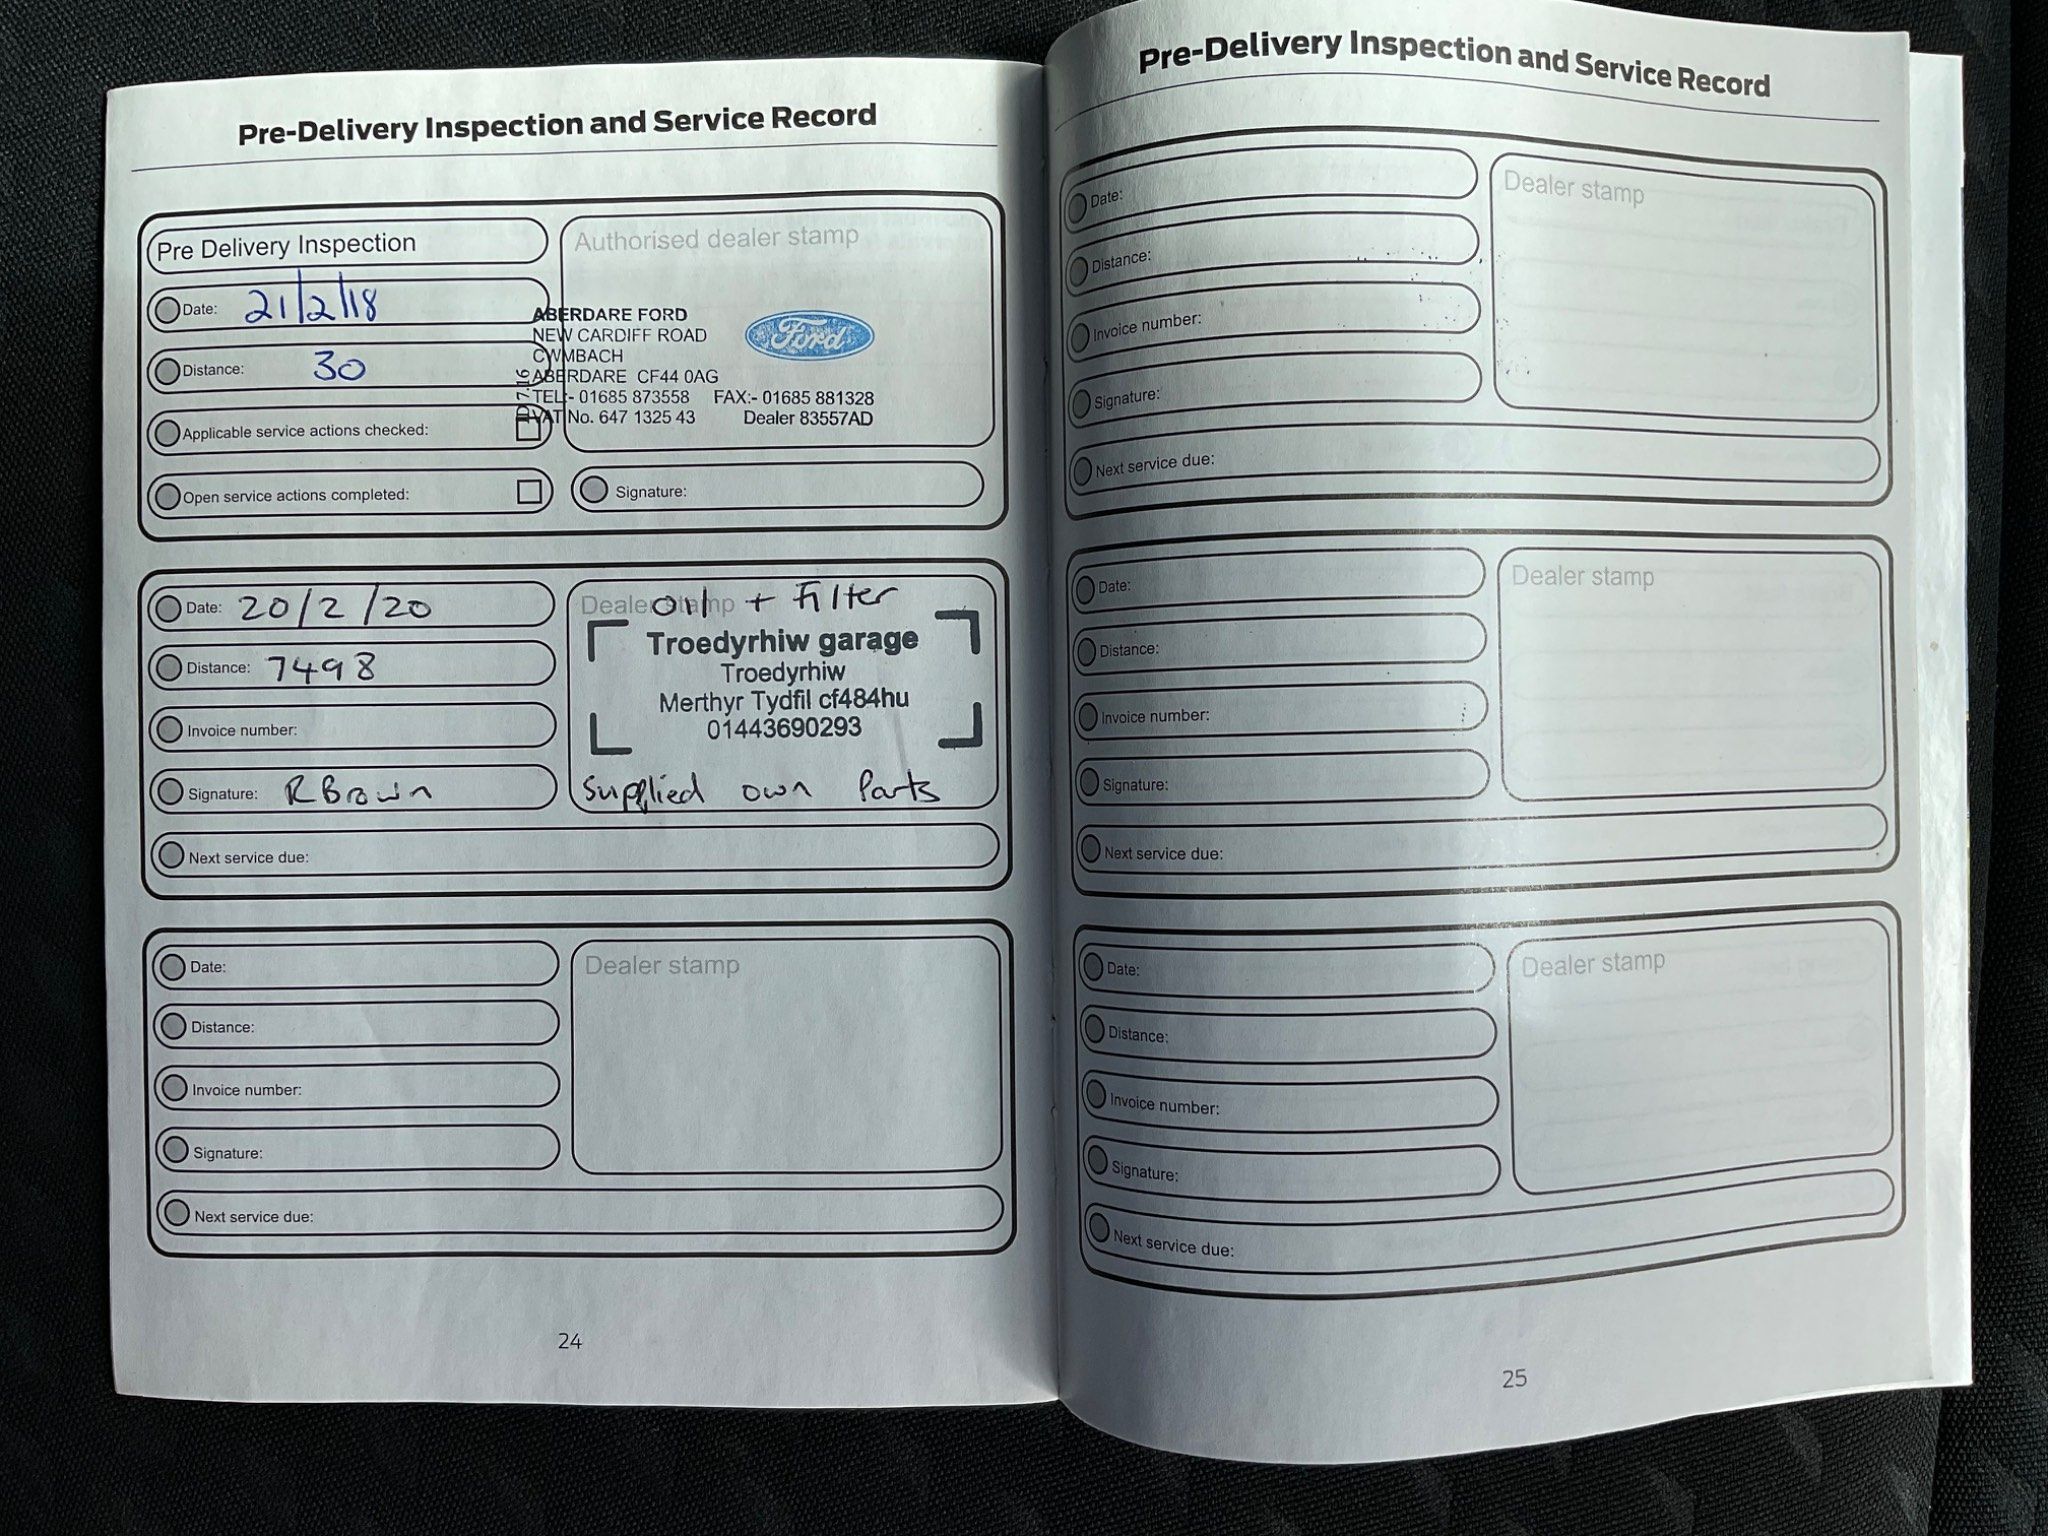 Pre-Delivery Inspection and Service Record
Pre Delivery Inspection
Date: 21/2/18
Distance: 30
Applicable service actions checked:
Open service actions completed:
Authorised dealer stamp
ABERDARE FORD
NEW CARDIFF ROAD
CWMBACH
ABERDARE CF44 0AG
TEL:- 01685 873558 FAX:- 01685 881328
VAT No. 647 1325 43 Dealer 83557AD
Ford
Signature:
Date: 20/2/20
Distance: 7498
Invoice number:
Signature: R Brown
Next service due:
Dealer stamp
oil + Filter
Troedyrhiw garage
Troedyrhiw
Merthyr Tydfil cf484hu
01443690293
Supplied own Parts
Date:
Distance:
Invoice number:
Signature:
Next service due:
Dealer stamp
24
Pre-Delivery Inspection and Service Record
Date:
Distance:
Invoice number:
Signature:
Next service due:
Dealer stamp
Date:
Distance:
Invoice number:
Signature:
Next service due:
Dealer stamp
Date:
Distance:
Invoice number:
Signature:
Next service due:
Dealer stamp
25